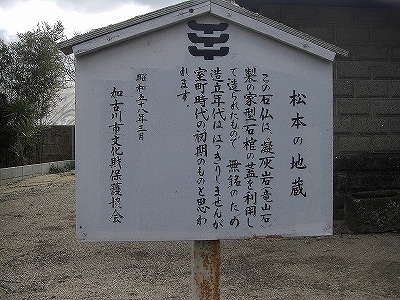 松本の地蔵
この石仏は、凝灰岩(竜山石)
製の家型石棺の蓋を利用し
て造られたもので 無銘のため
造立年代は はっきりしませんが
室町時代の初期のものと思わ
れます。
昭和五十八年三月
加古川市文化財保護協会